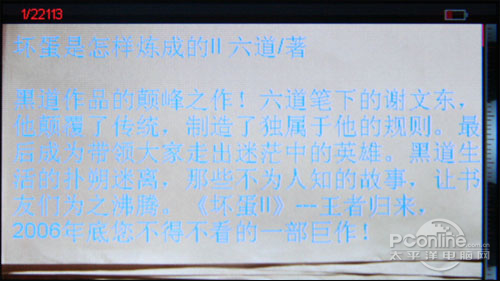 1/22113
坏蛋是怎样炼成的II 六道/著
黑道作品的颠峰之作！六道笔下的谢文东，
他颠覆了传统，制造了独属于他的规则。最
后成为带领大家走出迷茫中的英雄。黑道生
活的扑朔迷离，那些不为人知的故事，让书
友们为之沸腾。《坏蛋II》---王者归来，
2006年底您不得不看的一部巨作！
PConline
.com.cn
太平洋电脑网